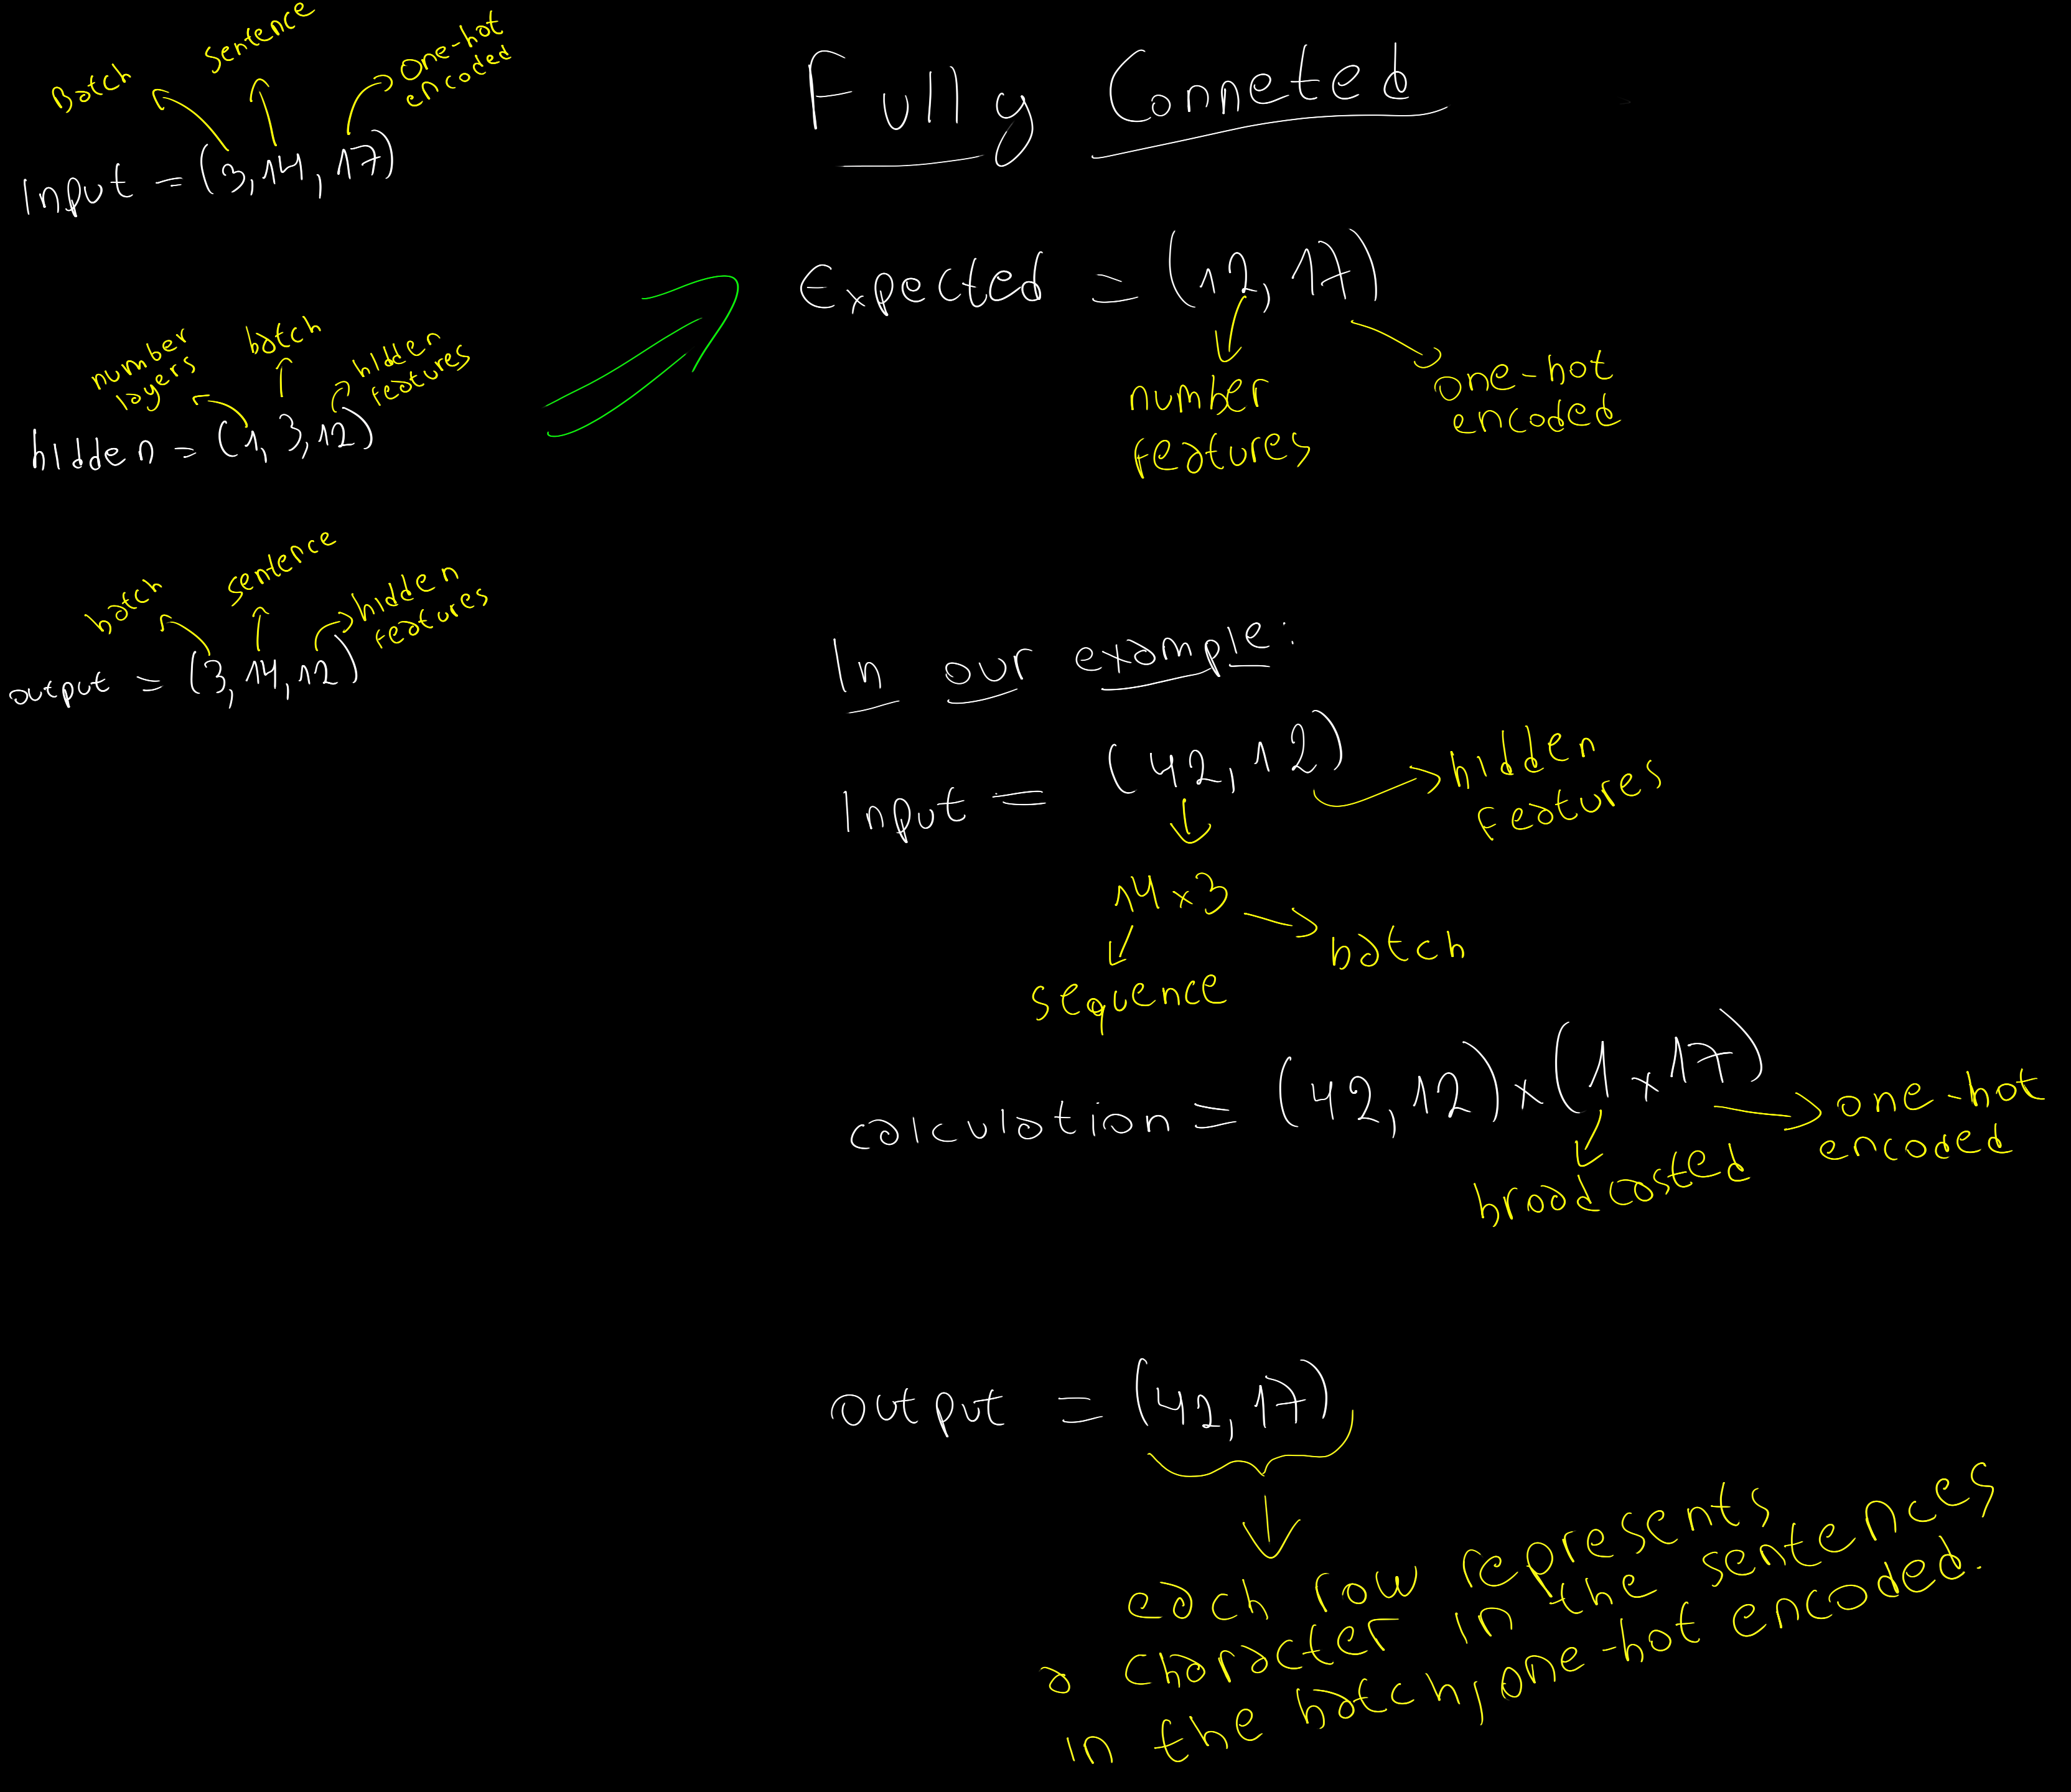 Batch
sentence
one-hot
encoded
Input = (3,14,17)
number
layers
batch
hidden
features
hidden = (1,3,12)
batch
sentence
hidden
features
output = (3,14,12)
Fully Conneted
Expected = (12,17)
number
features
one-hot
encoded
In our example:
Input = (42,12)
hidden
features
14x3
sequence
batch
calculation = (42,12)x(1x17)
broadcasted
one-hot
encoded
output = (42,17)
each row represents
a character in the sentences
in the batch, one-hot encoded.